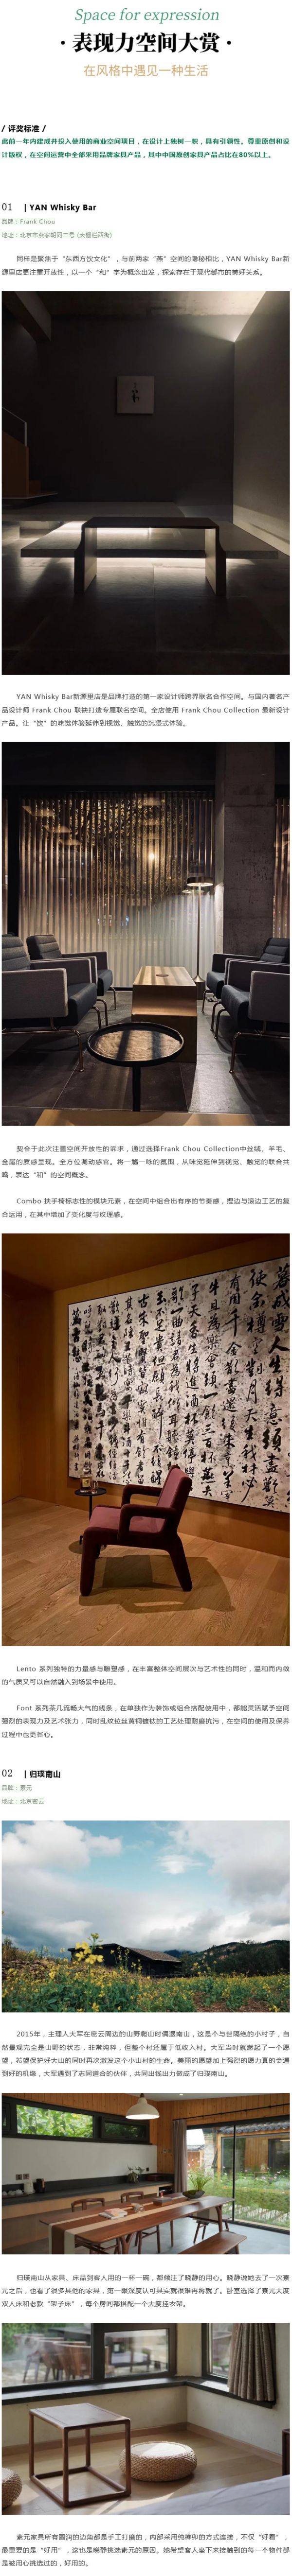 Space for expression
·表现力空间大赏·
在风格中遇见一种生活
/ 评奖标准 /
此前一年内建成并投入使用的商业空间项目，在设计上独树一帜，具有引领性。尊重原创和设
计版权，在空间运营中全部采用品牌家具产品，其中中国原创家具产品占比在80%以上。
01 | YAN Whisky Bar
品牌：Frank Chou
地址：北京市燕家胡同二号 (大栅栏西街)
同样是聚焦于“东西方饮文化”，与前两家“燕”空间的隐秘相比，YAN Whisky Bar新
源里店更注重开放性，以一个“和”字为概念出发，探索存在于现代都市的美好关系。
YAN Whisky Bar新源里店是品牌打造的第一家设计师跨界联名合作空间。与国内著名产
品设计师 Frank Chou 联袂打造专属联名空间。全店使用 Frank Chou Collection 最新设计
产品。让“饮”的味觉体验延伸到视觉、触觉的沉浸式体验。
契合于此次注重空间开放性的诉求，通过选择Frank Chou Collection中丝绒、羊毛、
金属的质感呈现。全方位调动感官。将一觞一咏的氛围，从味觉延伸到视觉、触觉的联合共
鸣，表达“和”的空间概念。
Combo 扶手椅标志性的模块元素，在空间中组合出有序的节奏感，捏边与滚边工艺的复
合运用，在其中增加了变化度与纹理感。
Lento 系列独特的力量感与雕塑感，在丰富整体空间层次与艺术性的同时，温和而内敛
的气质又可以自然融入到场景中使用。
Font 系列茶几流畅大气的线条，在单独作为装饰或组合搭配使用中，都能灵活赋予空间
强烈的表现力及艺术张力，同时乱纹拉丝黄铜镀钛的工艺处理耐磨抗污，在空间的使用及保养
过程中也更省心。
02 | 归璞南山
品牌：素元
地址：北京密云
2015年，主理人大军在密云周边的山野爬山时偶遇南山，这是个与世隔绝的小村子，自
然景观完全是山野的状态，非常纯粹，但整个村还属于低收入村。大军当时就燃起了一个愿
望，希望保护好大山的同时再次激发这个小山村的生命。美丽的愿望加上强烈的愿力真的会遇
到好的机缘，大军遇到了志同道合的伙伴，共同出钱出力做成了归璞南山。
归璞南山从家具、床品到客人用的一杯一碗，都倾注了晓静的用心。晓静说她去了一次素
元之后，也看了很多其他的家具，第一眼深度认可其实就很难再将就了。卧室选择了素元大度
双人床和老款“架子床”，每个房间都搭配一个大度挂衣架。
素元家具所有圆润的边角都是手工打磨的，内部采用纯榫卯的方式连接，不仅“好看”，
最重要的是“好用”，这也是晓静挑选素元的原因。她希望客人坐下来接触到的每一个物件都
是被用心挑选过的，好用的。